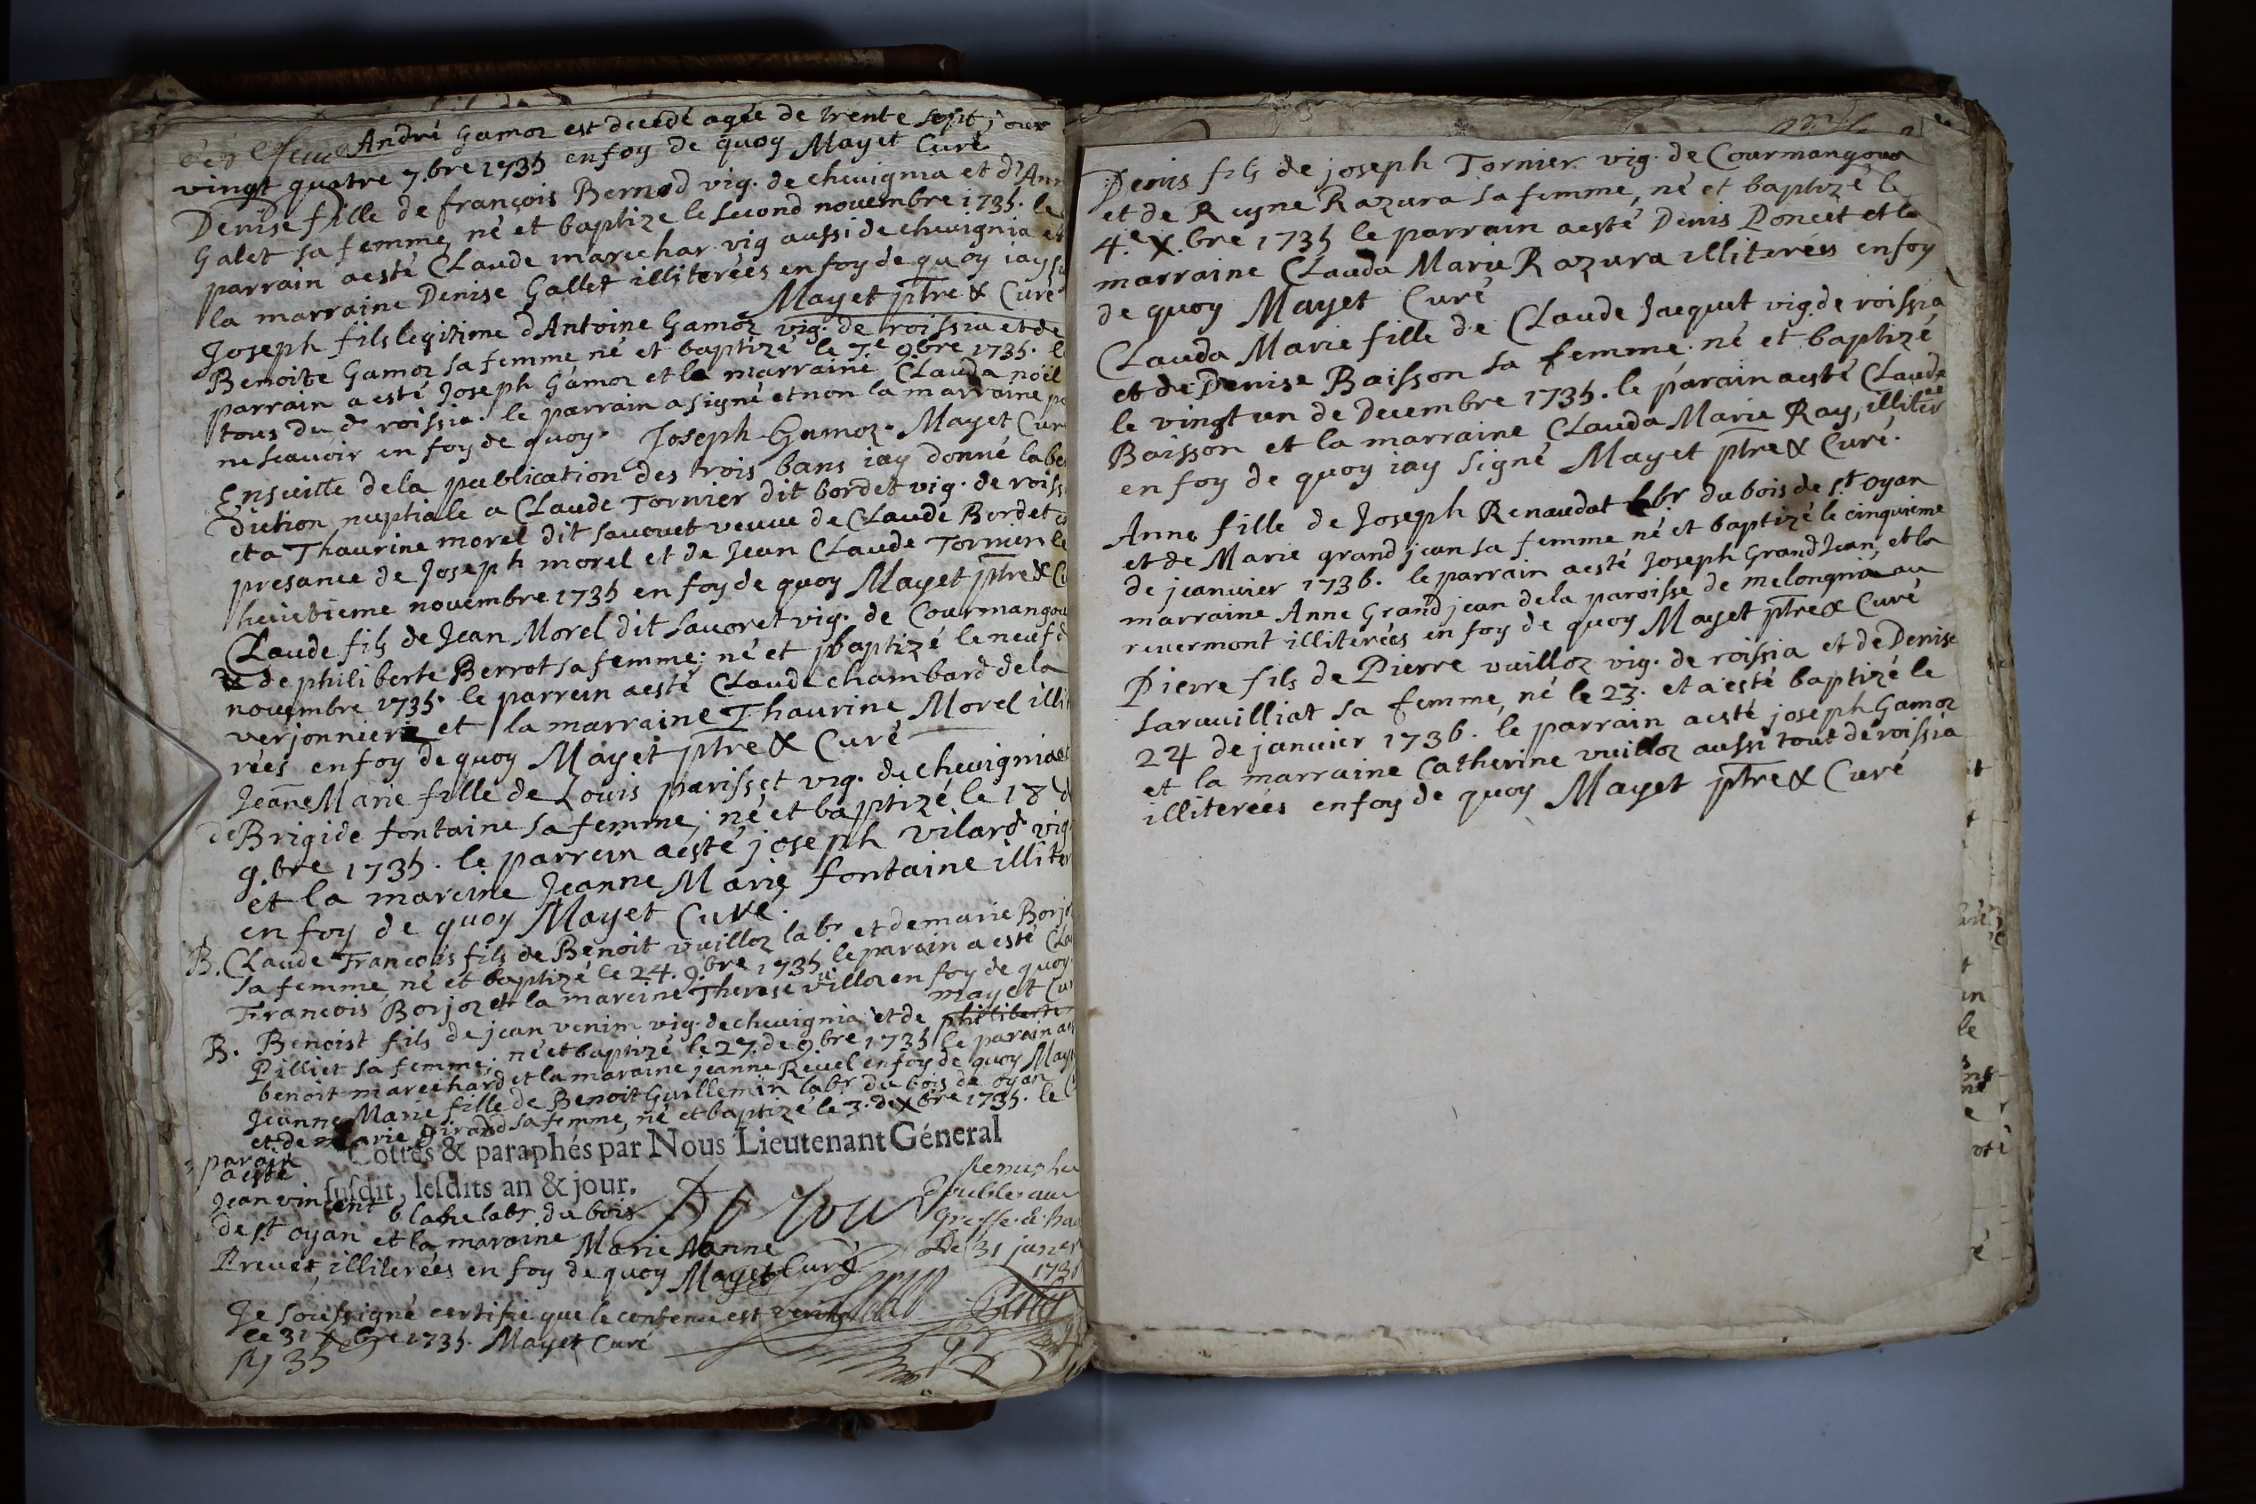 André Gamoz est decedé agée de trente sept jour
vingt quatre 7.bre 1735 en foy de quoy Mayet Curé
Denise fille de françois Bernod vig. de cheuignia et d'Ann
Galet sa femme, né et baptize le second nouembre 1735. le
parrain aesté Claude marechar vig aussi de cheuignia et
la marraine Denise Gallet illiterées en foy de quoy iay
Mayet ptre & Curé
Joseph fils legitime d'Antoine Gamoz vig. de roissia et de
Benoite Gamoz sa femme né et baptizé le 7.e 9.bre 1735. le
parrain a esté Joseph Gamoz et la marraine Clauda noël
tous du d. roissia. le parrain a signé et non la marraine p
ne scauoir en foy de quoy. Joseph Gamoz. Mayet Cur
Ensuitte dela publication des trois bans iay donné la be
diction nuptiale a Claude Tornier dit bordet vig. de roiss
et a Thaurine morel dit sauouet veuue de Claude Bordet
presance de Joseph morel et de Jean Claude Tornier le
huictieme nouembre 1735 en foy de quoy Mayet ptre & C
Claude fils de Jean Morel dit sauoret vig. de Courmangou
& de philiberte Berrot sa femme; né et baptizé le neuf d
nouembre 1735. le parrein aesté Claude chambard dela
verjonniere et la marraine Thaurine Morel illi
rées en foy de quoy Mayet ptre & Curé
Jeanne Marie fille de Louis parisset vig. de cheuignia
de Brigide fontaine sa femme; né et baptizé le 18 d
9.bre 1735. le parrein aesté joseph vilard vig
et la mareine Jeanne Marie fontaine illiter
en foy de quoy Mayet Curé.
B. Claude François fils de Benoit vuilloz labr et de marie Borjo
sa femme, né et baptizé le 24. 9.bre 1735 le parain a esté Cla
François Borjoz et la mareine Therese villoz en foy de quoy
mayet Cu
B. Benoist fils de jean venim vig. de cheuignia et de philiberte
Pilliet sa femme; né et baptizé le 27. de 9.bre 1735 le parain a
benoit marechard et la maraine jeanne Reuel en foy de quoy May
Jeanne Marie fille de Benoit Guillemin labr du bois de oyan
et de marie girard sa femme, né et baptizé le 3. de Xbre 1735. le
Cottés & paraphés par Nous Lieutenant Géneral
parain
aesté
susdit, lesdits an & jour.
Jean vincent blabu labr. du bois
de st oyan et la maraine Marie Nanne
Preuet illiterées en foy de quoy Mayet Curé
De 31 janer
Je soussigné certifie que le contenu est
le 31 Xbre 1735. Mayet Curé
1735
Denis fils de joseph Tornier vig. de Courmangoux
et de Reyne Razura sa femme, né et baptizé le
4.e X.bre 1735 le parrain aesté Denis Poncet et la
marraine Clauda Marie Razura illiterées en foy
de quoy Mayet Curé
Clauda Marie fille de Claude Jacquet vig. de roissia
et de Denise Baisson sa femme. né et baptizé
le vingt un de Decembre 1735. le parain aesté Claude
Baisson et la marraine Clauda Marie Ray, illiterées
en foy de quoy iay signé Mayet ptre & Curé.
Anne fille de Joseph Renaudat labr. du bois de st oyan
et de Marie grand jean sa femme né et baptizé le cinquieme
de jeanuier 1736. le parrain aesté Joseph Grand Jean, et la
marraine Anne Grandjean dela paroisse de melongnia au
reuermont illiterées en foy de quoy Mayet ptre & Curé
Pierre fils de Pierre vuilloz vig. de roissia et de Denise
Larauilliat sa femme, né le 23. et a esté baptizé le
24 de januier 1736. le parrain aesté joseph Gamoz
et la marraine Catherine vuilloz aussi tout de roissia
illiterées en foy de quoy Mayet ptre & Curé